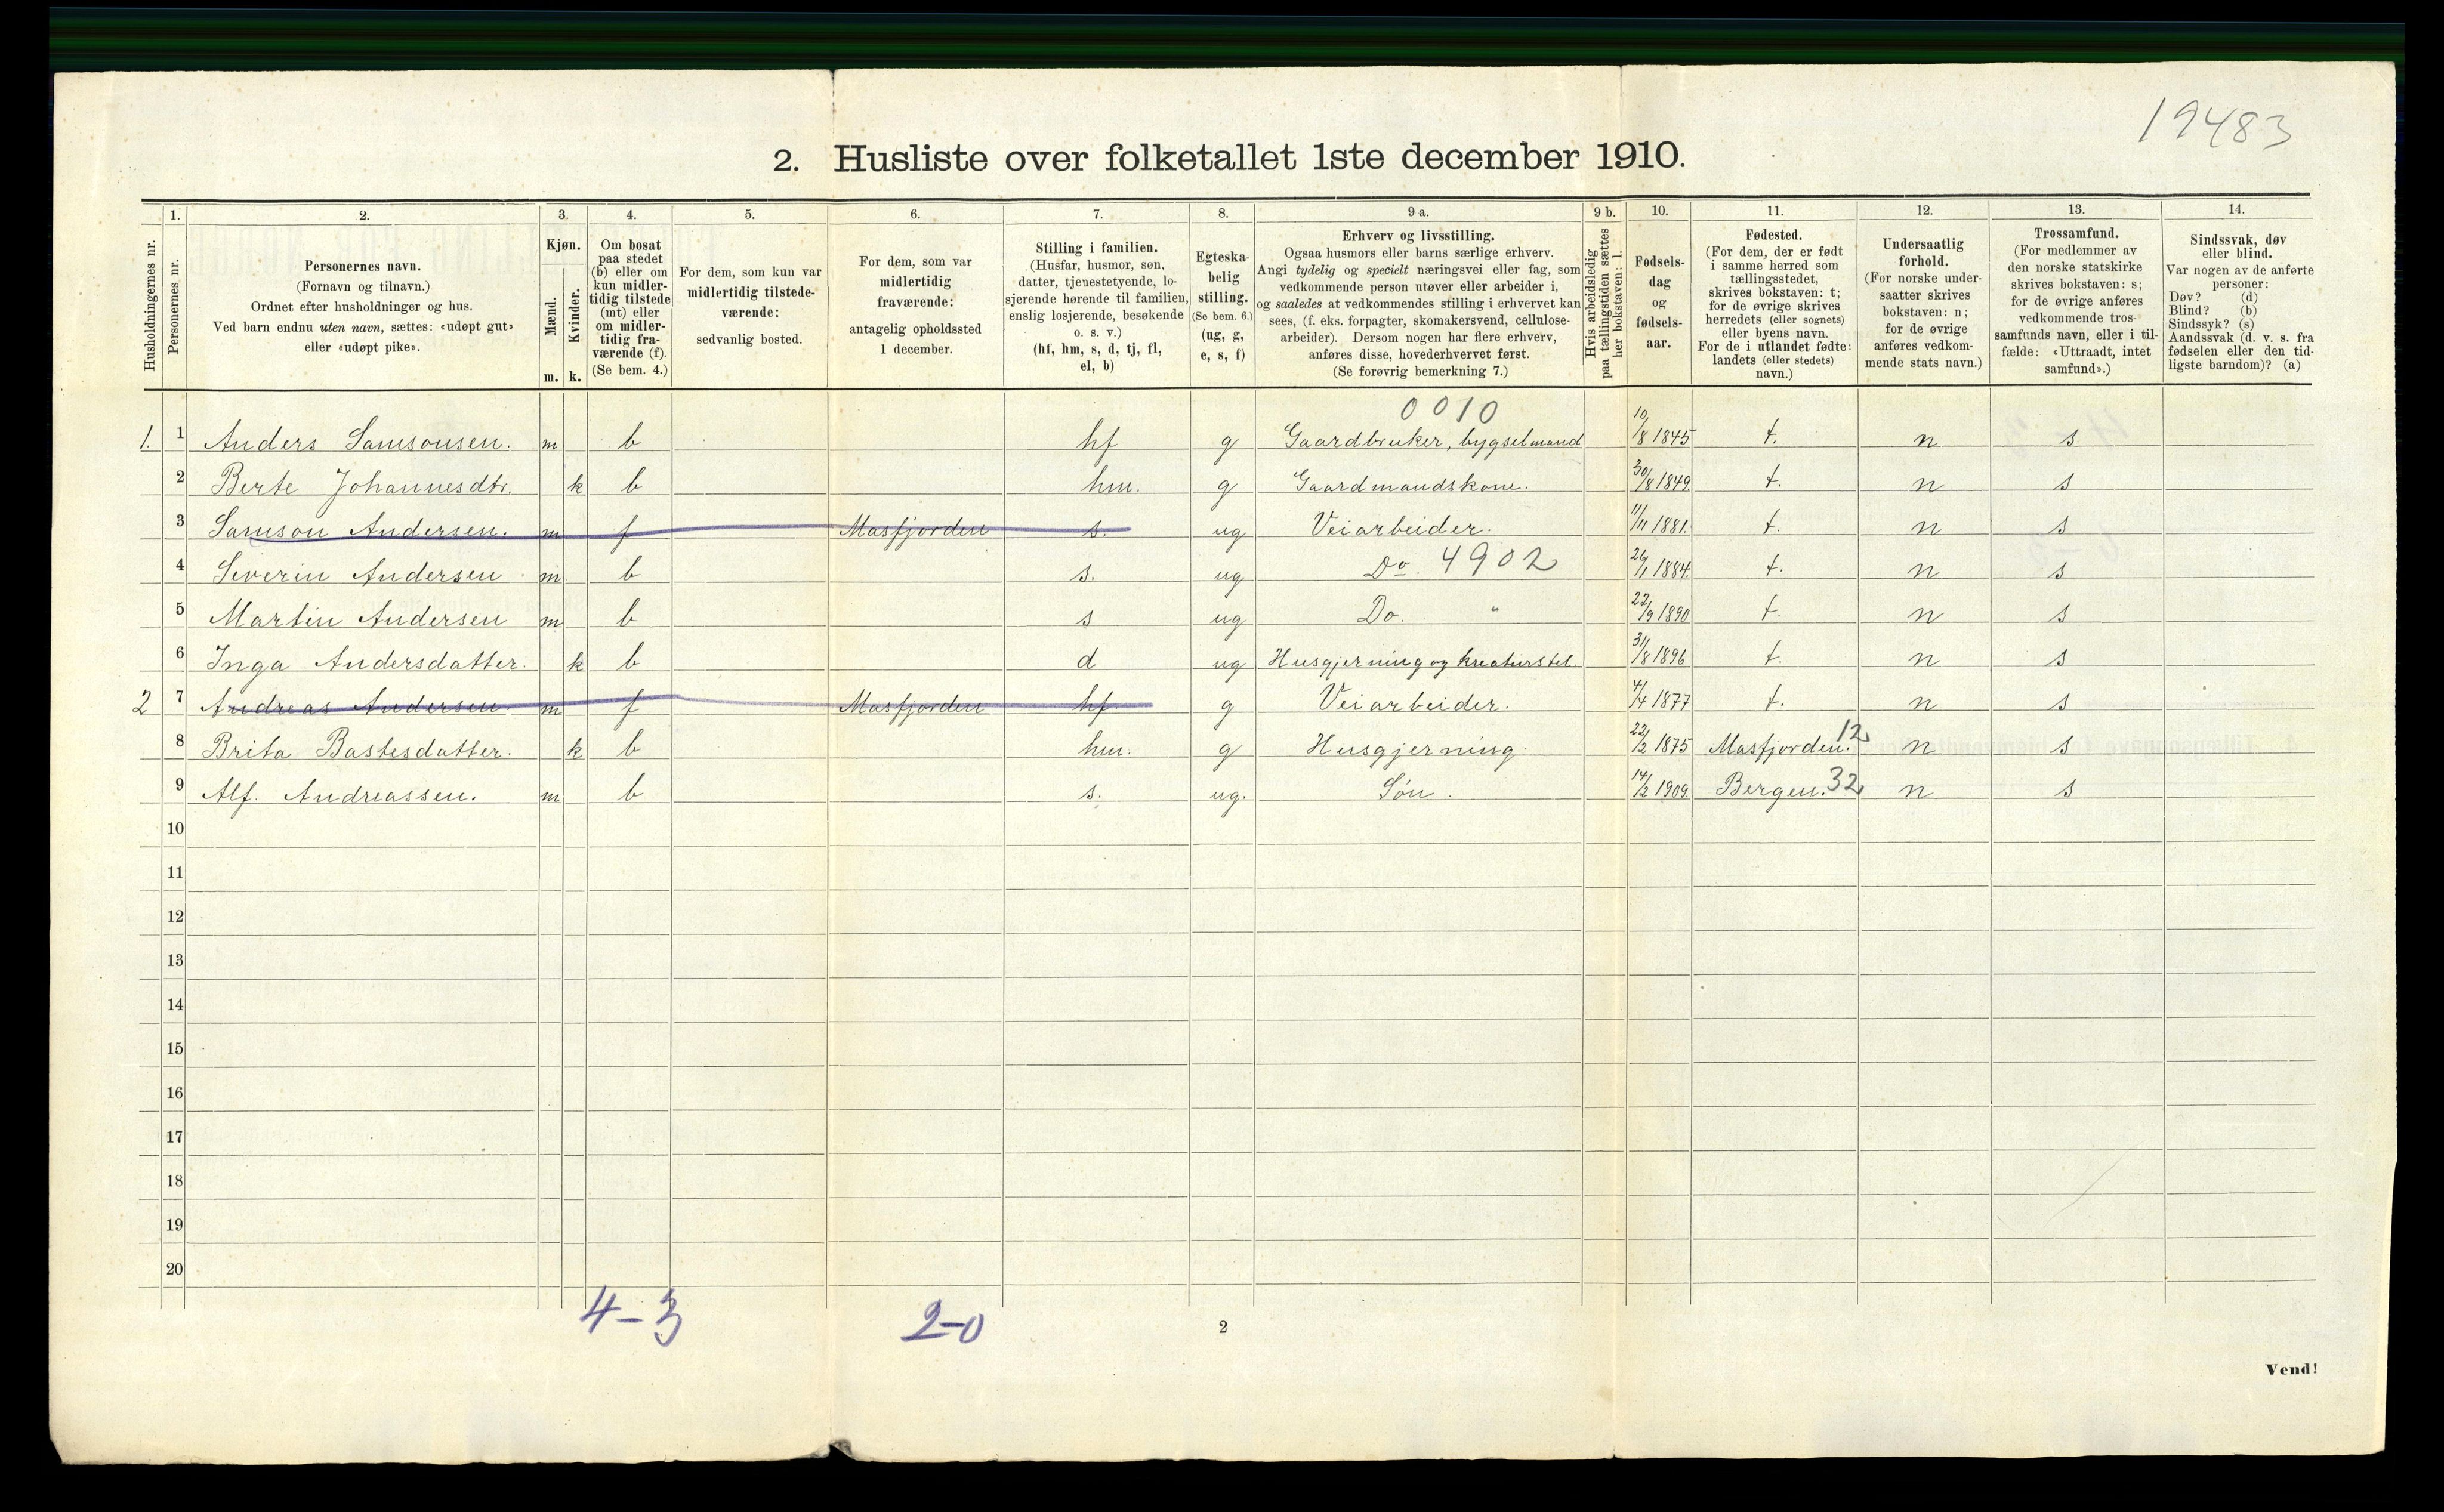 19483
2. Husliste over folketallet 1ste december 1910.
Husholdningernes nr.
1.
Personernes nr.
2.
Personernes navn.
(Fornavn og tilnavn.)
Ordnet efter husholdninger og hus.
Ved barn endnu uten navn, sættes: «udøpt gut»
eller «udøpt pike».
3.
Kjøn.
Mænd.
Kvinder.
m. k.
4.
Om bosat
paa stedet
(b) eller om
kun midler-
tidig tilstede
(mt) eller
om midler-
tidig fra-
værende (f).
(Se bem. 4.)
5.
For dem, som kun var
midlertidig tilstede-
værende:
sedvanlig bosted.
6.
For dem, som var
midlertidig
fraværende:
antagelig opholdssted
1 december.
7.
Stilling i familien.
(Husfar, husmor, søn,
datter, tjenestetyende, lo-
sjerende hørende til familien,
enslig losjerende, besøkende
o. s. v.)
(hf, hm, s, d, tj, fl,
el, b)
8.
Egteska-
belig
stilling.
(Se bem. 6.)
(ug, g,
e, s, f)
9 a.
Erhverv og livsstilling.
Ogsaa husmors eller barns særlige erhverv.
Angi tydelig og specielt næringsvei eller fag, som
vedkommende person utøver eller arbeider i,
og saaledes at vedkommendes stilling i erhvervet kan
sees, (f. eks. forpagter, skomakersvend, cellulose-
arbeider). Dersom nogen har flere erhverv,
anføres disse, hovederhvervet først.
(Se forøvrig bemerkning 7.)
9 b.
Hvis arbeidsledig
paa tællingstiden sættes
her bokstaven: l.
10.
Fødsels-
dag
og
fødsels-
aar.
11.
Fødested.
(For dem, der er født
i samme herred som
tællingsstedet,
skrives bokstaven: t;
for de øvrige skrives
herredets (eller sognets)
eller byens navn.
For de i utlandet fødte:
landets (eller stedets)
navn.)
12.
Undersaatlig
forhold.
(For norske under-
saatter skrives
bokstaven: n;
for de øvrige
anføres vedkom-
mende stats navn.)
13.
Trossamfund.
(For medlemmer av
den norske statskirke
skrives bokstaven: s;
for de øvrige anføres
vedkommende tros-
samfunds navn, eller i til-
fælde: «Uttraadt, intet
samfund».)
14.
Sindssvak, døv
eller blind.
Var nogen av de anførte
personer:
Døv? (d)
Blind? (b)
Sindssyk? (s)
Aandssvak (d. v. s. fra
fødselen eller den tid-
ligste barndom)? (a)
0010
1. 1 Anders Samsonsen. m b hf g Gaardbruker, bygselmand 10/8 1845 t. n s
2 Berte Johannesdtr. k b hm. g Gaardmandskone. 30/8 1849. t. n s
3 Samson Andersen. m f Masfjorden s. ug Veiarbeider. 11/11 1881. t. n s
4 Severin Andersen m b s. ug Do. 4902 26/1 1884. t. n s
5 Martin Andersen m b s ug Do. " 22/9 1890 t. n s
6 Inga Andersdatter. k b d ug Husgjerning og kreaturstel. 31/8 1896 t. n s
2 7 Andreas Andersen. m f Masfjorden hf. g Veiarbeider. 4/4 1877 t. n s
8 Brita Bastesdatter. k b hm. g Husgjerning. 22/2 1875 Masfjorden. 12 n s
9 Alf. Andreassen. m b s. ug. Søn. 14/2 1909. Bergen. 32 n s
10
11
12
13
14
15
16
17
18
19
20
4-3 2-0
2
Vend!